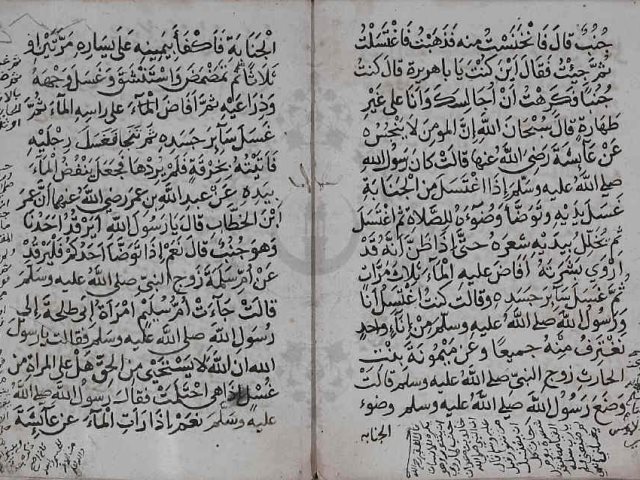 جنب قال فانخنست منه فذهبت فاغتسلت
ثم جئت فقال اين كنت يابا هريرة قال كنت
جنبا فكرهت ان اجالسك وانا على غير
طهارة قال سبحان الله ان المومن لا ينجس
عن عايشة رضى الله عنها قالت كان رسول الله
صلى الله عليه وسلم اذا اغتسل من الجنابة
غسل يديه وتوضا وضوءه للصلاه ثم اغتسل
ثم يخلل بيديه شعره حتى اذا ظن انه قد
اروى بشرته افاض عليه الماء ثلاث مرات
ثم غسل ساير جسده وقالت كنت اغتسل انا
ورسول الله صلى الله عليه وسلم من اناء واحد
نغترف منه جميعا وعن ميمونة بنت
الحارث زوج النبى صلى الله عليه وسلم قالت
وضع رسول الله صلى الله عليه وسلم وضوء
الجنابه
الجنابة فاكفأ بيمينه على يساره مرتين او
ثلاثا ثم تمضمض واستنشق وغسل وجهه
وذراعيه ثم افاض الماء على راسه ثم
غسل ساير جسده ثم تنحا فغسل رجليه
فاتيته بخرقة فلم يردها فجعل ينفض الماء
بيده عن عبد الله بن عمر رضى الله عنهما ان عمر
ابن الخطاب قال يا رسول الله ايرقد احدنا
وهو جنب قال نعم اذا توضا احدكم فليرقد
عن ام سلمة زوج النبى صلى الله عليه وسلم
قالت جاءت ام سليم امراة ابى طلحة الى
رسول الله صلى الله عليه وسلم فقالت يا رسول
الله ان الله لا يستحى من الحق هل على المراة من
غسل اذا هى احتلمت فقال رسول الله صلى الله
عليه وسلم نعم اذا رات الماء عن عايشة